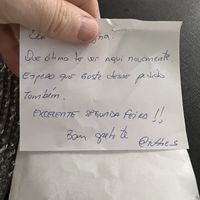 Que ótimo te ver aqui novamente.
Espero que goste desse pedido
também.
EXCELENTE SEGUNDA FEIRA!!
Bom apetite